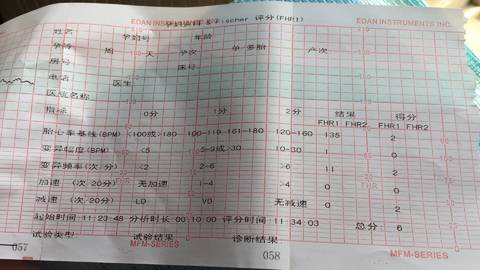 EDAN INSTRUMENTS  Fischer 评分(FHR1)  EDAN INSTRUMENTS INC.
姓名  孕妇号  年龄
孕龄  周  天  孕次  单/多胎  产次
房号  床号
电话  医生
医院名称
指标  0分  1分  2分  结果  得分
FHR1 FHR2  FHR1 FHR2
胎心率基线(BPM)  <100或>180  100-119,161-180  120-160  135  2
变异幅度(BPM)  <5  5-9或>30  10-30  1  0
变异频率(次/分)  <2  2-6  >6  11  2
加速 (次/20分)  无加速  1-4  >4  0  0
减速 (次/20分)  LD  VD  无减速  0  2
起始时间:11:23:48 分析时长:00:10:00 评分时间:11:34:03  总分: 6
试验类型:  试验结果:  诊断结果:
057  MFM-SERIES  058  MFM-SERIES